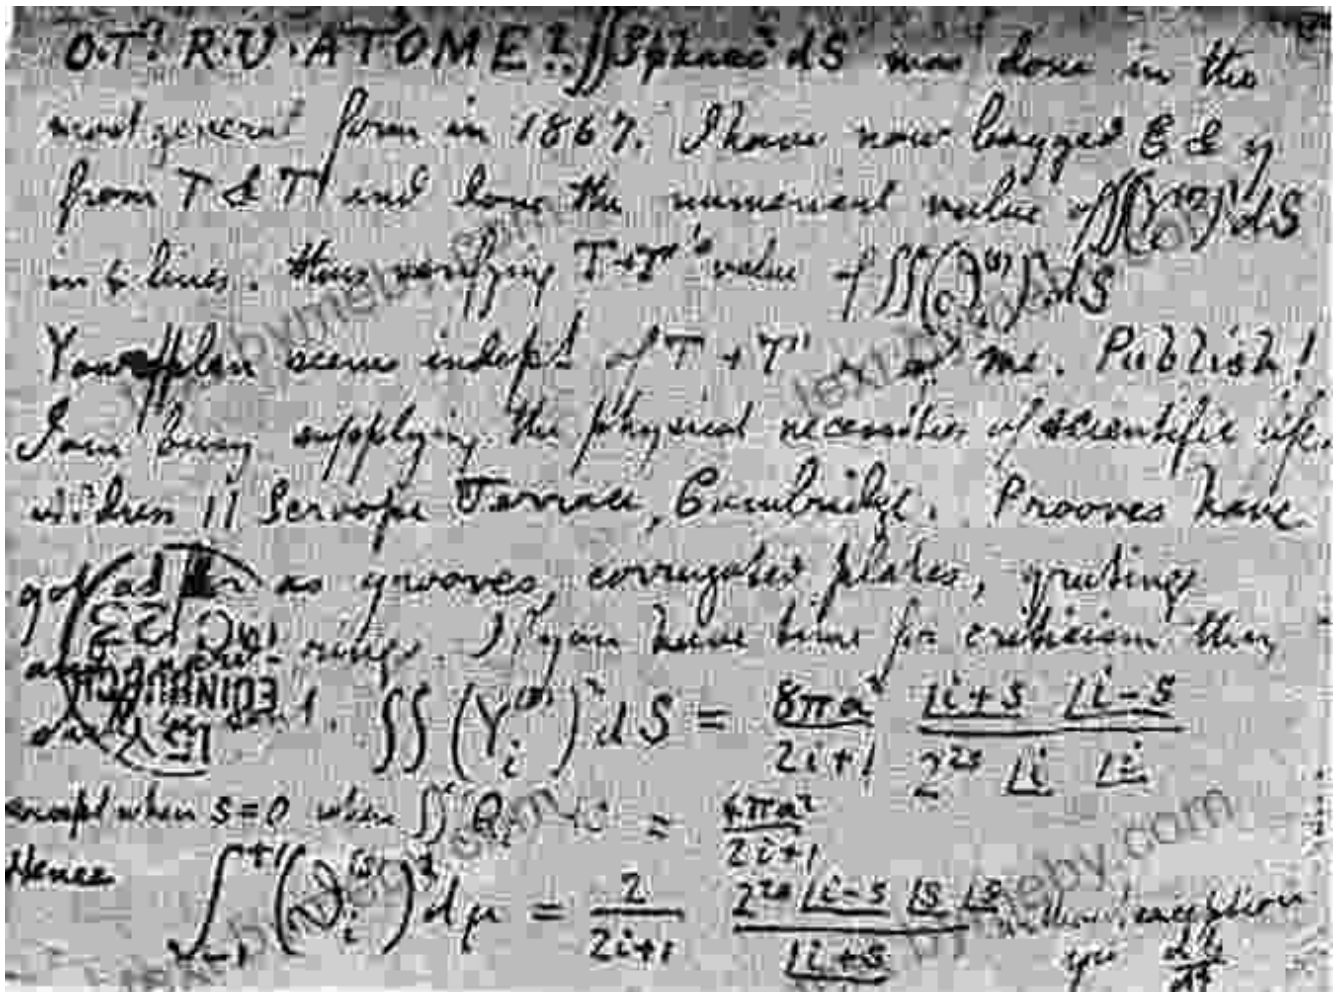 O.T! R.U. AT OME? ∬Spharc² dS was done in the
most general form in 1867. I have now bagged ξ & η
from T & T' and done the numerical value of ∬(Y_i^(s))² dS
in 4 lines. thus verifying T+T''s value of ∬(ϑ_i^(s))² dS
Your plan seems indept. of T + T' or of me. Publish!
I am busy supplying the physical necessities of scientific life.
address 11 Scroope Terrace, Cambridge. Prooves have
got as far as grooves, corrugated plates, gratings
rings. If you have time for criticism then
∬ (Y_i^(s))² dS = 8πa²/(2i+1) · |i+s |i−s / (2^2s |i |i)
except when s=0 when ∬ Q_i = 4πa²/(2i+1)
Hence ∫_−1^+1 (ϑ_i^(s))² dμ = 2/(2i+1) · 2^2s |i−s |s |s / |i+s exception
yrs dp/dt